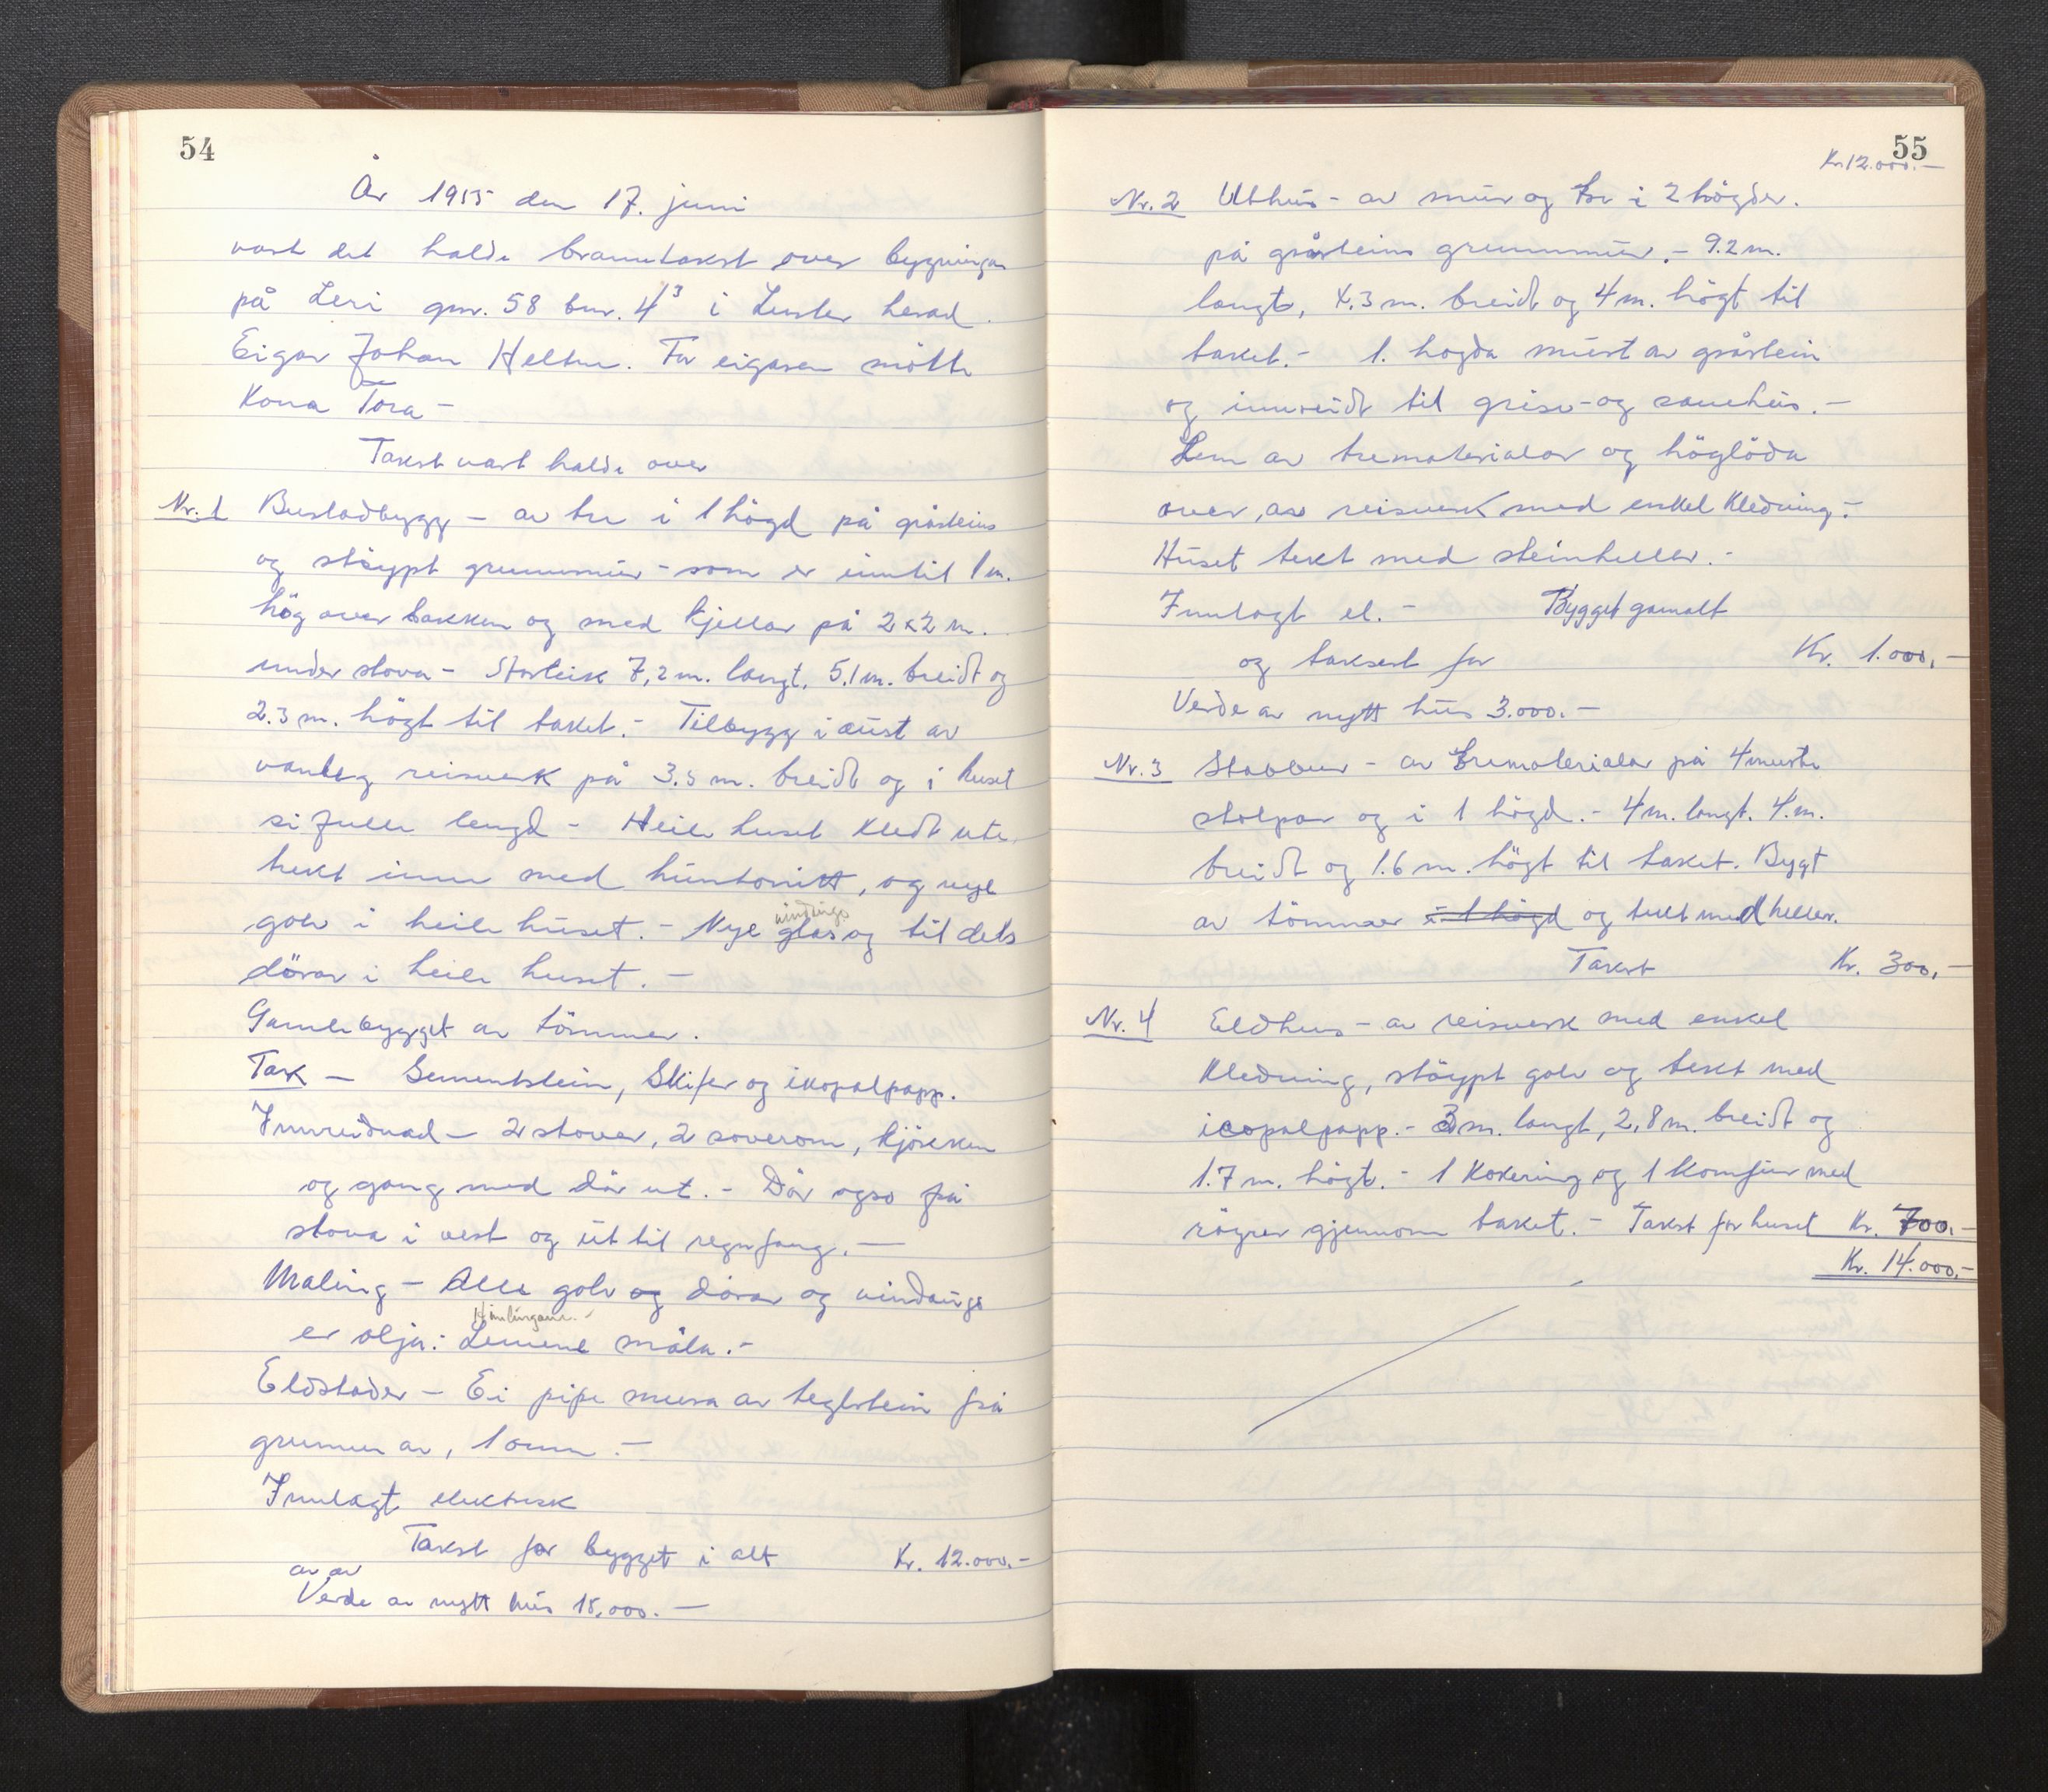 54
År 1955 den 17. juni
vart det halde branntakst over bygningar
på Leri gnr. 58 bnr. 4³ i Luster herad.
Eigar Johan Heltne. For eigaren møtte
Kona Tora –
Takst vart halde over
Nr. 1 Bustadbygg – av tre i 1 högd på gråsteins
og støypt grunnmur – som er inntil 1 m.
hög over bakken og med kjellar på 2x2 m.
under stova – Storleik 7,2 m. langt, 5.1 m. breidt og
2.3 m. högt til taket. – Tilbygg i aust av
vanleg reisverk på 3.5 m. breidt og i huset
si fulle lengd – Heile huset kledt ute,
trekt inne med huntonitt, og nye
golv i heile huset. – Nye vindaugs glas og til dels
dörar i heile huset. –
Gamlebygget av tömmer.
Tak – Sementstein, Skifer og ikopalpapp.
Innreidnad – 2 stover, 2 soverom, kjökken
og gang med dör ut. – Dör ogso frå
stova i vest og ut til regnfang. –
Maling – Alle golv og dörar og vindaugo
er olja: Lemene Himlingane måla. –
Eldstader – Ei pipe mura av teglstein frå
grunnen av, 1 omn. –
Innlagt elektrisk
Takst for bygget i alt Kr. 12.000.–
av av
Verde av nytt hus 15,000. –
55
Kr. 12.000.–
Nr. 2 Uthus – av mur og tre i 2 högder.
på gråsteins grunnmur. – 9.2 m.
langt, 4.3 m. breidt og 4 m. högt til
taket. – 1. hogda murt av gråstein
og innreidt til grise- og sauehus. –
Lem av trematerialar og höglöda
over, av reisverk med enkel kledning. –
Huset tekt med steinheller. –
Innlagt el. – Bygget gamalt
og taksert for Kr. 1.000,–
Verde av nytt hus 3.000. –
Nr. 3 Stabbur – av trematerialar på 4 murte
stolpar og i 1 högd. – 4 m. langt. 4. m.
breidt og 1.6 m. högt til taket. Bygt
av tömmer i 1 högd og tekt med heller.
Takst Kr. 300,–
Nr. 4 Eldhus – av reisverk med enkel
kledning, støypt golv og tekt med
icopalpapp. – 3 m. langt, 2,8 m. breidt og
1.7 m. högt. – 1 kokering og 1 komfur med
rögrør gjennom taket. – Takst for huset Kr. 700.–
Kr. 14.000,–